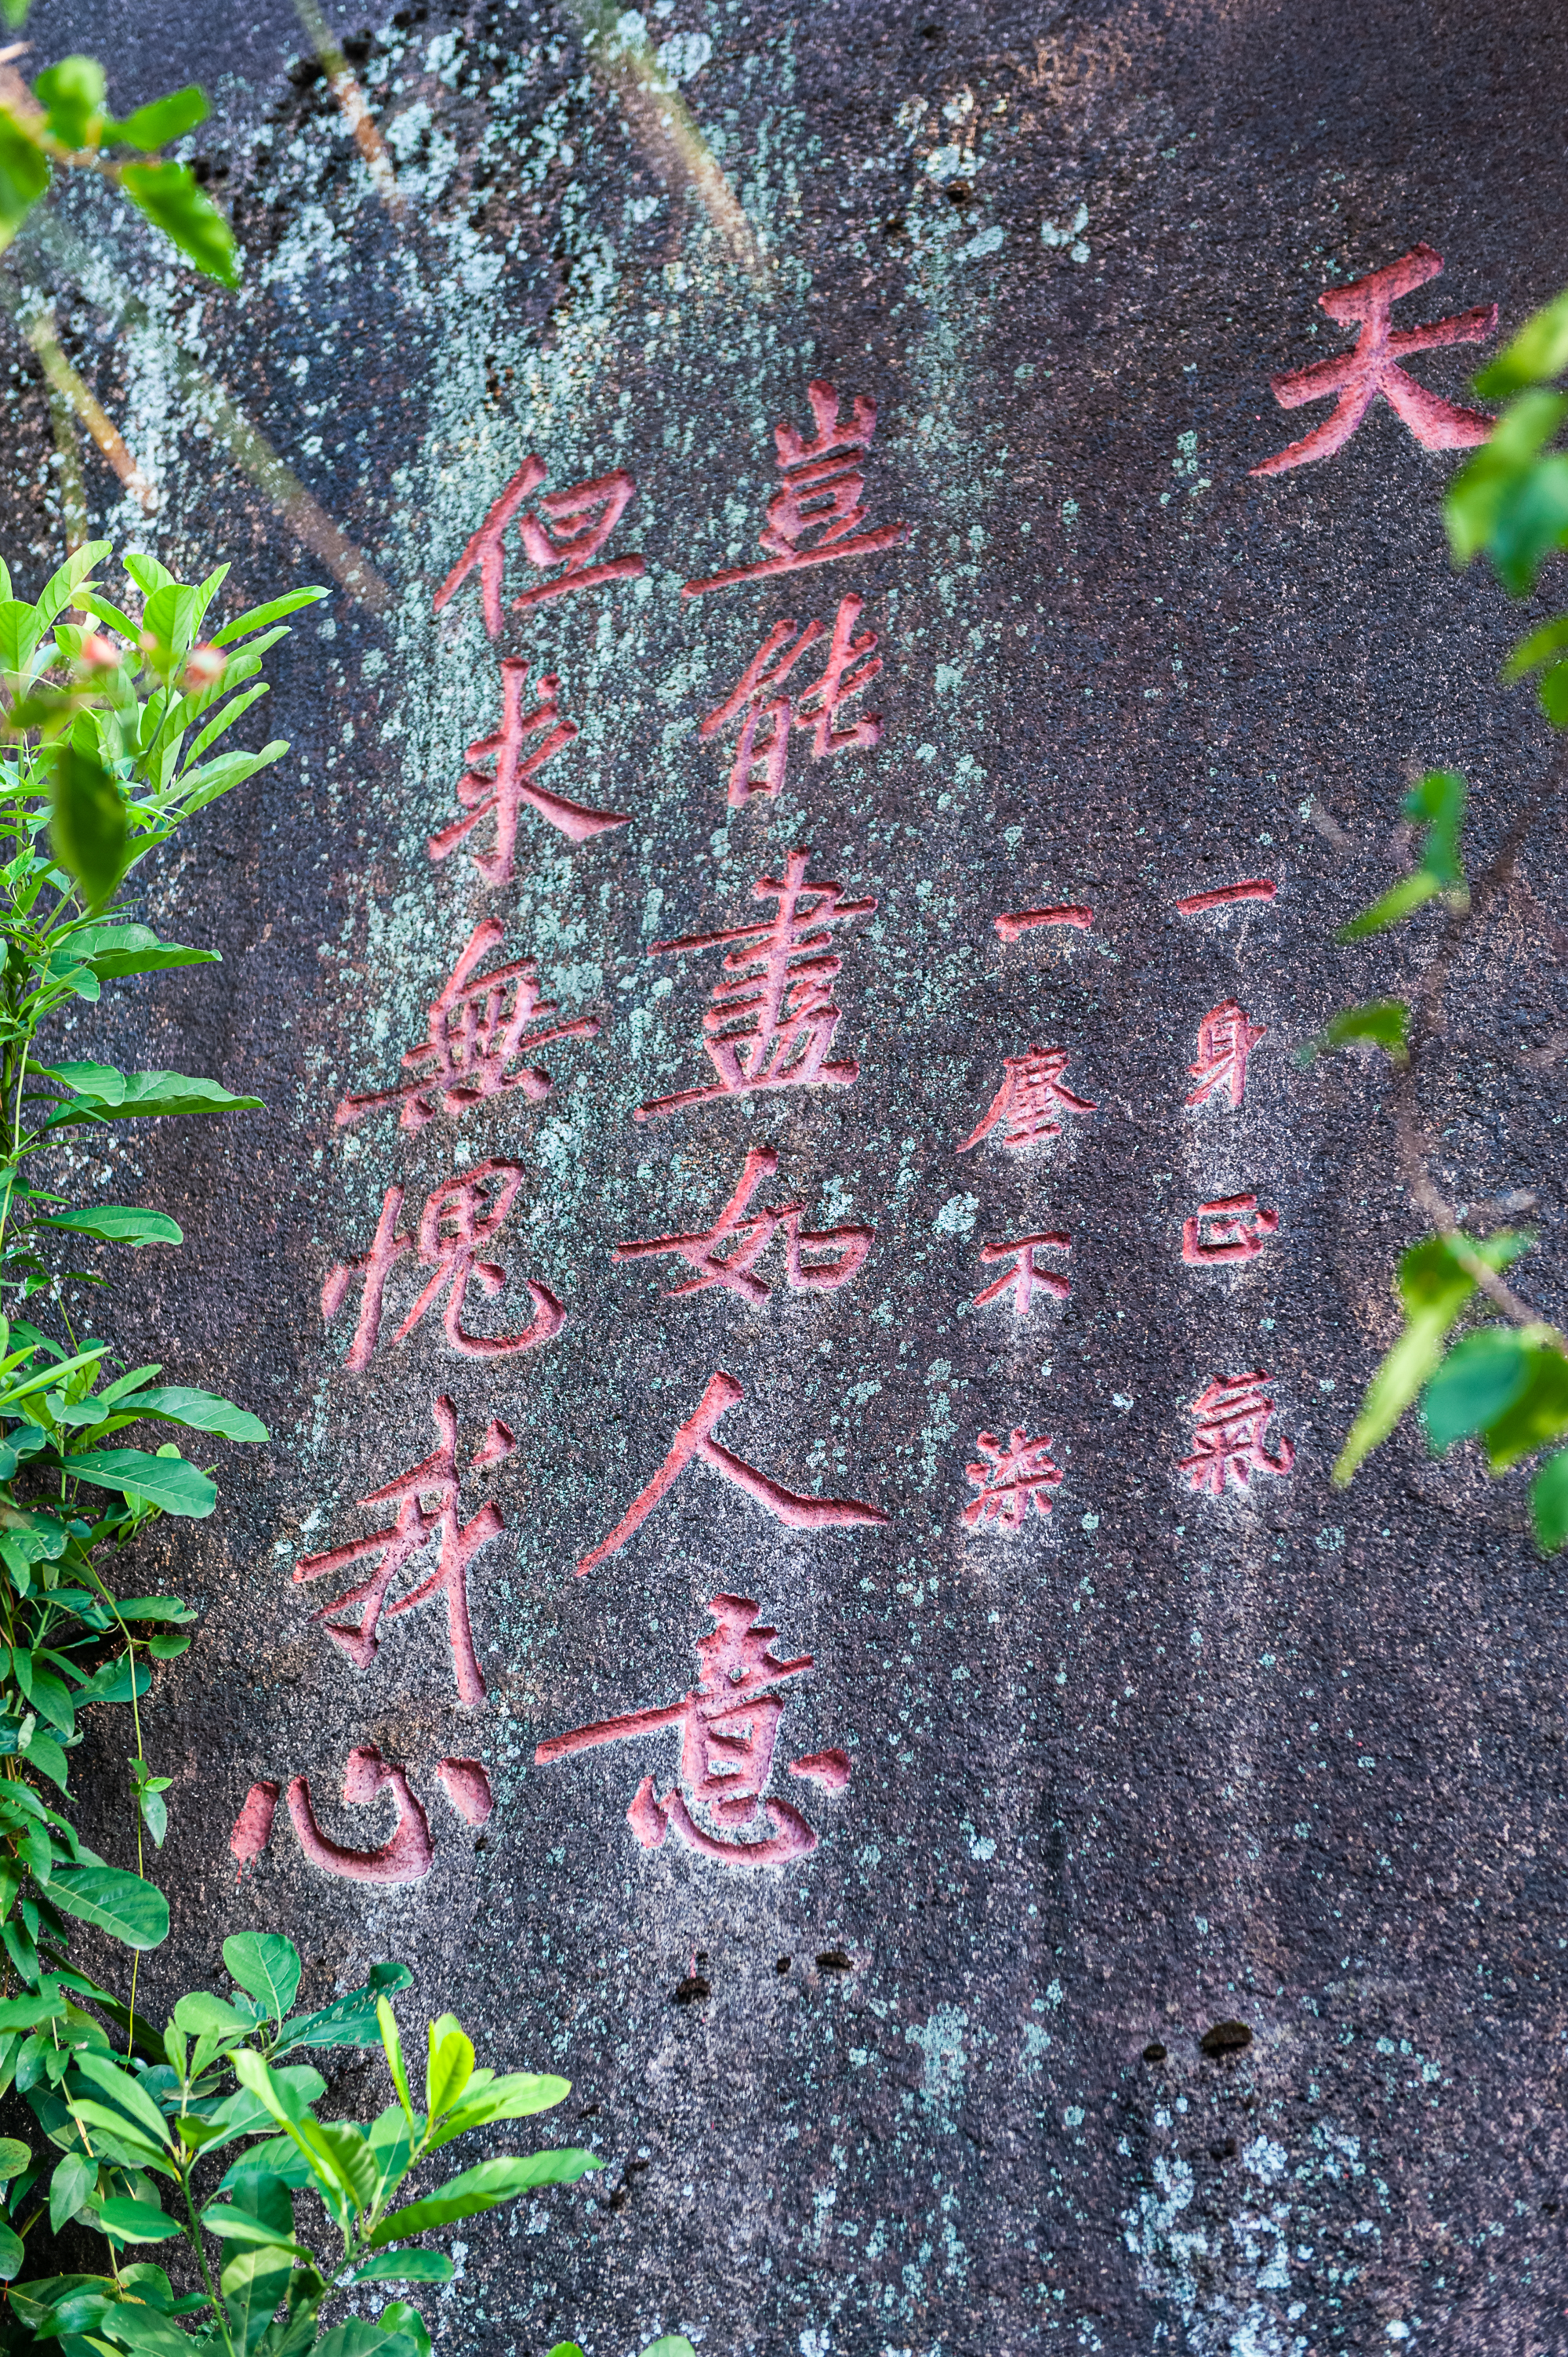 天
一身正氣
一塵不染
豈能盡如人意
但求無愧我心